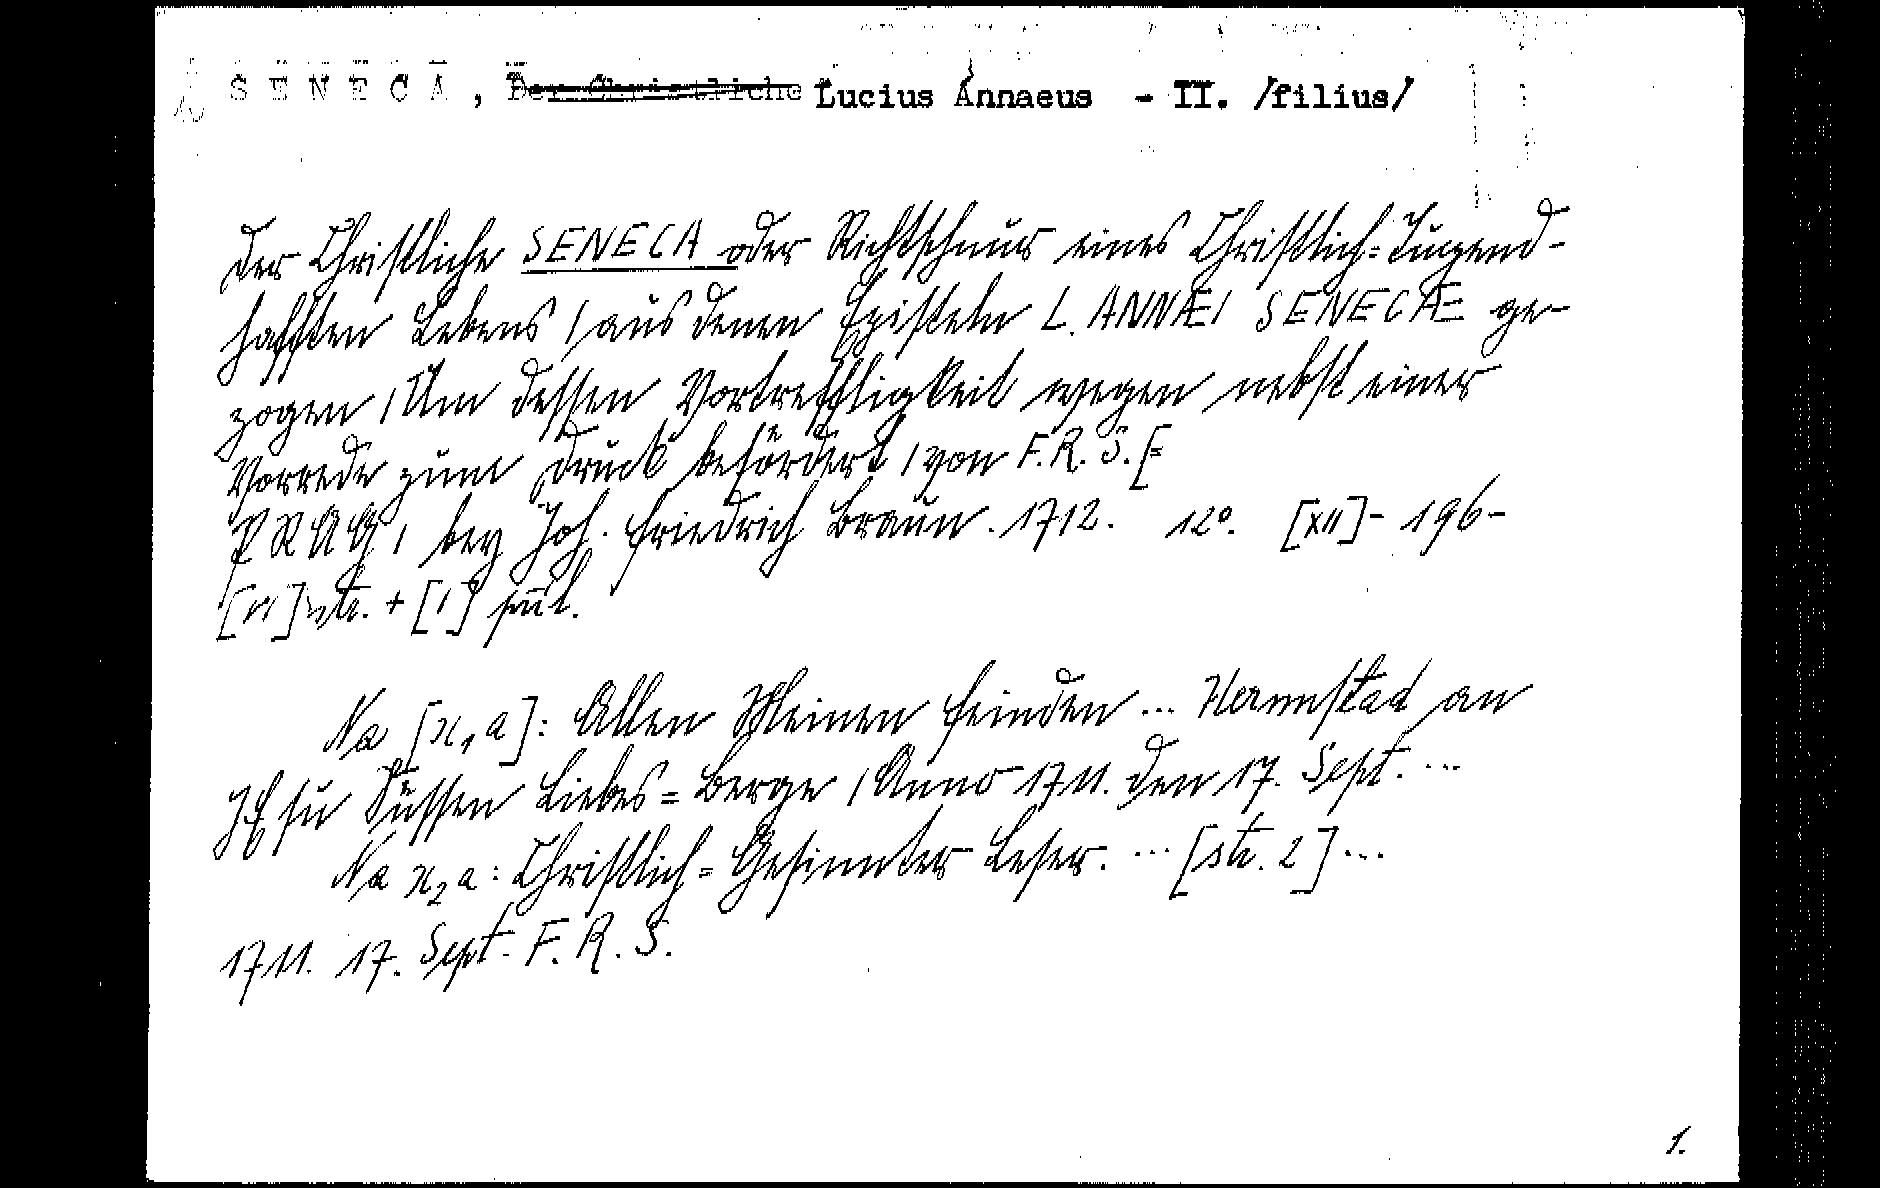 S E N E C A , Der Christliche Lucius Annaeus - II. /filius/
Der Christliche SENECA oder Richtschnur eines Christlich=Tugend-
hafften Lebens / aus denen Episteln L. ANNÆI SENECÆ ge-
zogen / Um dessen Vortreffligkeit wegen nebst einer
Vorrede zum Druck befördert / von F. R. S. [=
PRAG, bey Joh. Friedrich Braun. 1712. 12°. [XII]- 196-
[VI] str. + [1] příl.
Na [x,a]: Allen Meinen Feinden ... Hermstad an
Süssen Liebes=Berge / Anno 1711. den 17. Sept. ...
Na x2a: Christlich=Gesinnter Leser. ... [str. 2] ...
1711. 17. Sept. F. R. S.
1.